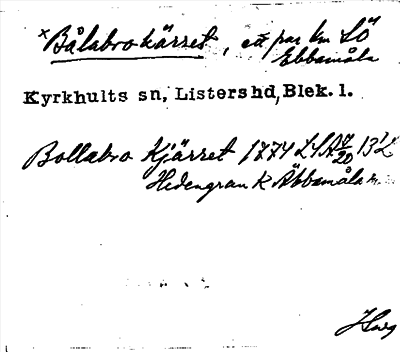 ×Bålabrokärret, ett par km SÖ
Ebbamåla
Kyrkhults sn, Listers hd, Blek. l.
Bollabro Kjärret 1774 LSA 20 13
Hedengran k Äbbamåla